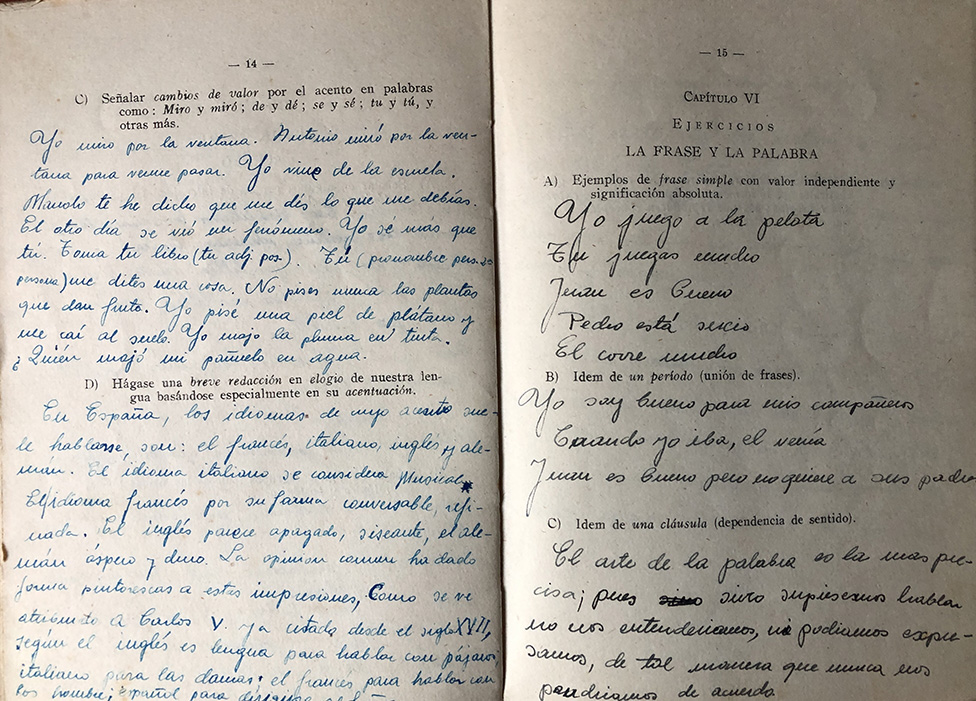 — 14 —
C) Señalar cambios de valor por el acento en palabras
como: Miro y miró; de y dé; se y sé; tu y tú, y
otras más.
Yo miro por la ventana. Antonio miró por la ven-
tana para verme pasar. Yo vine de la escuela.
Manolo te he dicho que me dés lo que me debías.
El otro día se vió un fenómeno. Yo sé más que
tú. Toma tu libro (tu adj. pos.). Tú (pronombre pers.
persona) me dites una cosa. No pises nunca las plantas
que dan fruto. Yo pisé una piel de plátano y
me caí al suelo. Yo mojo la pluma en tinta.
¿Quién majó mi pañuelo en agua.
D) Hágase una breve redacción en elogio de nuestra len-
gua basándose especialmente en su acentuación.
En España, los idiomas de cuyo acento sue-
le hablarse, son: el francés, italiano, inglés y ale-
man. El idioma italiano se considera Musical.
El idioma francés por su forma conversable, refi-
nada. El inglés parece apagado, siseante, el ale-
mán áspero y duro. La opinión comun ha dado
forma pintorescas a estas impresiones, Como se ve
atribuido a Carlos V. ya citada desde el siglo XVII,
según el inglés es lengua para hablar con pájaros
italiano para las damas; el francés para hablar con
los hombre; español para
— 15 —
CAPÍTULO VI
EJERCICIOS
LA FRASE Y LA PALABRA
A) Ejemplos de frase simple con valor independiente y
significación absoluta.
Yo juego a la pelota
Tu juegas mucho
Juan es bueno
Pedro está sucio
El corre mucho
B) Idem de un período (unión de frases).
Yo soy bueno para mis compañeros
Cuando yo iba, el venía
Juan es bueno pero no quiere a sus padre
C) Idem de una cláusula (dependencia de sentido).
El arte de la palabra es la mas pre-
cisa; pues sino supiesemos hablar
no nos entenderiamos, ni podiamos expre-
sarnos, de tal manera que nunca nos
pondriamos de acuerdo